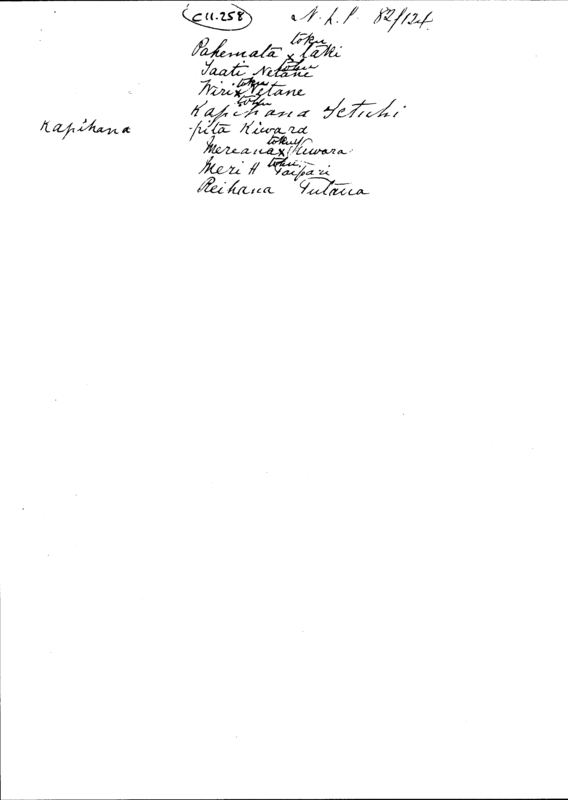 C11.258
N. L. P. 82/124
Pakemata toku x taki
Taati Netane
Wiri toku x Netane
toku
Kapihana Tetuhi
Kapihana
pita Kiwara
Mereana toku x Kiwara
Meri H toku Taipari
Reihana Tutana